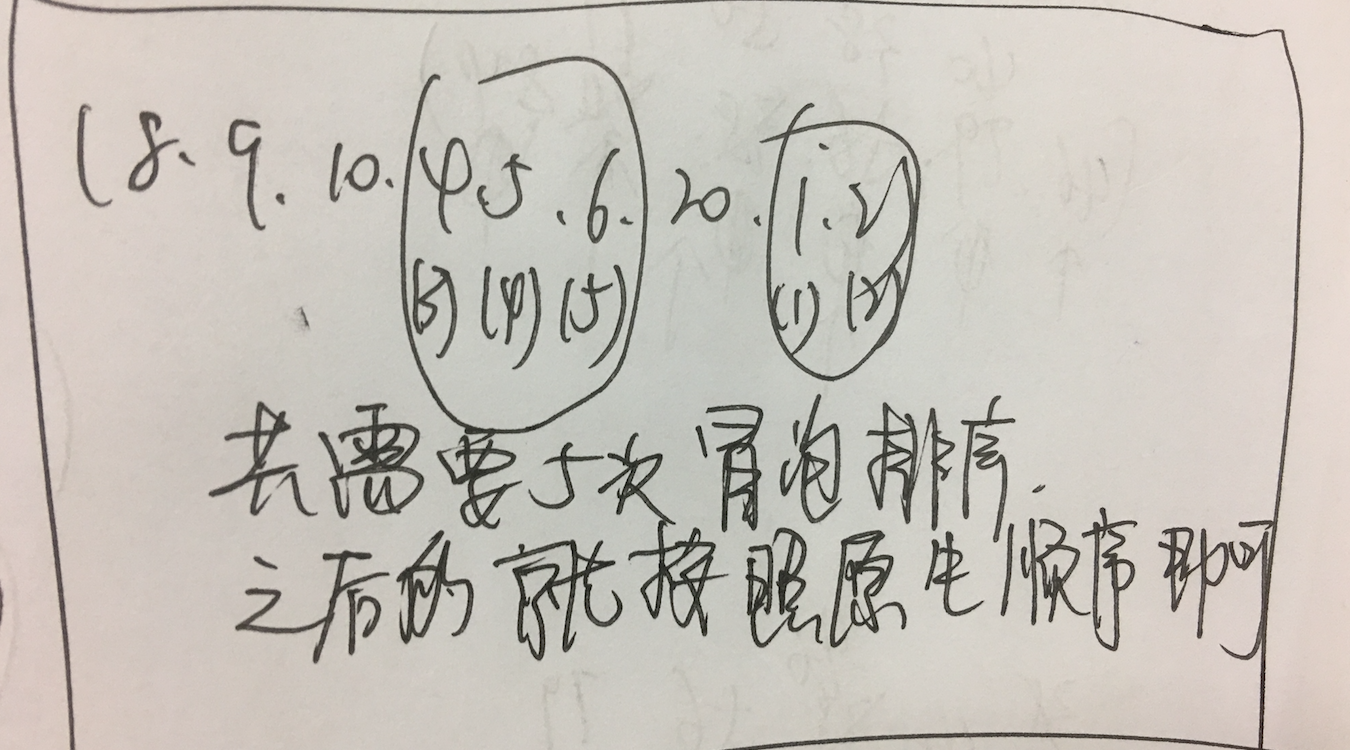 (8. 9. 10. 4.5.6. 20. 1.2)
(3) (4) (5) (1) (2)
共需要5次冒泡排序.
之后的就按照原先顺序即可